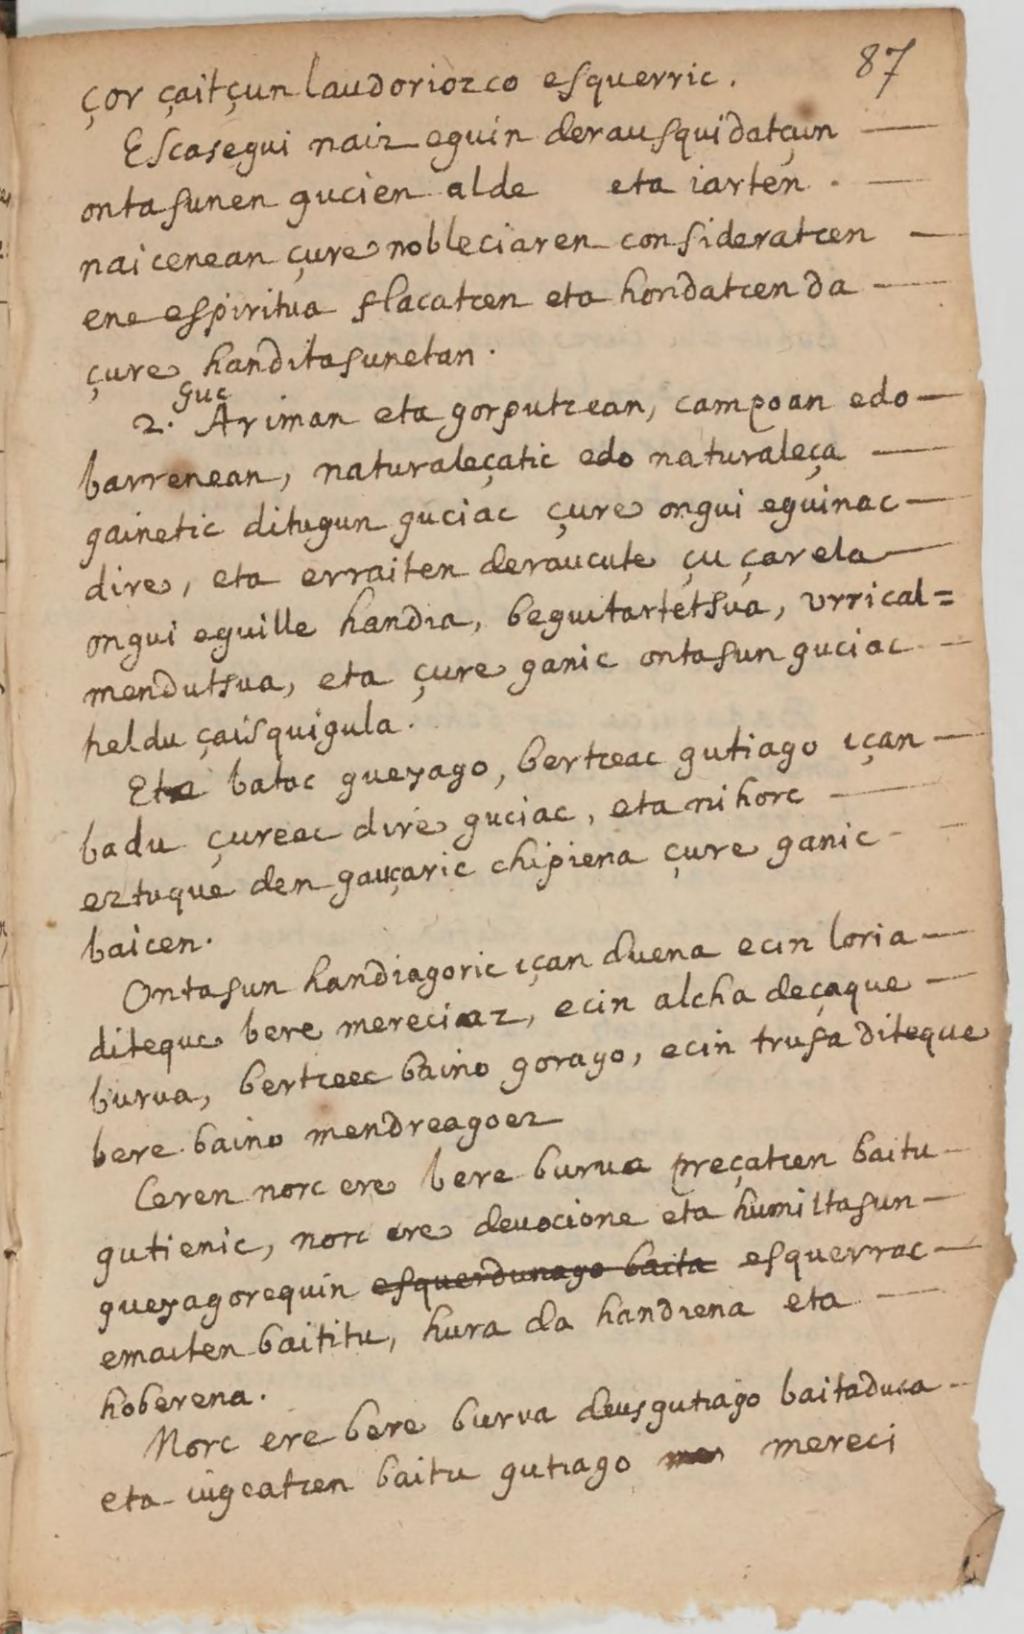 87
çor çaitçun laudoriozco esquerric.
Escasegui naiz eguin derausquidatçun
ontasunen gucien alde eta iarten.
naicenean çure nobleciaren consideratcen
ene espiritua flacatcen eta hondatcen da
çure handitasunetan.
guc
2. Ariman eta gorputcean, campoan edo
barrenean, naturaleçatic edo naturaleça
gainetic ditugun guciac çure ongui eguinac
dire, eta erraiten deraucute çu çarela
ongui eguille handia, beguitartetsua, urrical=
mendutsua, eta çure ganic ontasun guciac
heldu çaisquigula.
Eta batac gueyago, bertceac gutiago içan
badu çureac dire guciac, eta nihorc
eztuque den gauçaric chipiena çure ganic
baicen.
Ontasun handiagoric içan duena ecin loria
diteque bere mereciaz, ecin alcha deçaque
burua, bertceec baino gorago, ecin trufa diteque
bere baino mendreagoez
Ceren norc ere bere burua preçatcen baitu
gutienic, norc ere devocione eta humiltasun
gueyagorequin esquerdunago baita esquerrac
emaiten baititu, hura da handiena eta
hoberena.
Norc ere bere burua deusgutiago baitaduca
eta iugeatcen baitu gutiago mereci